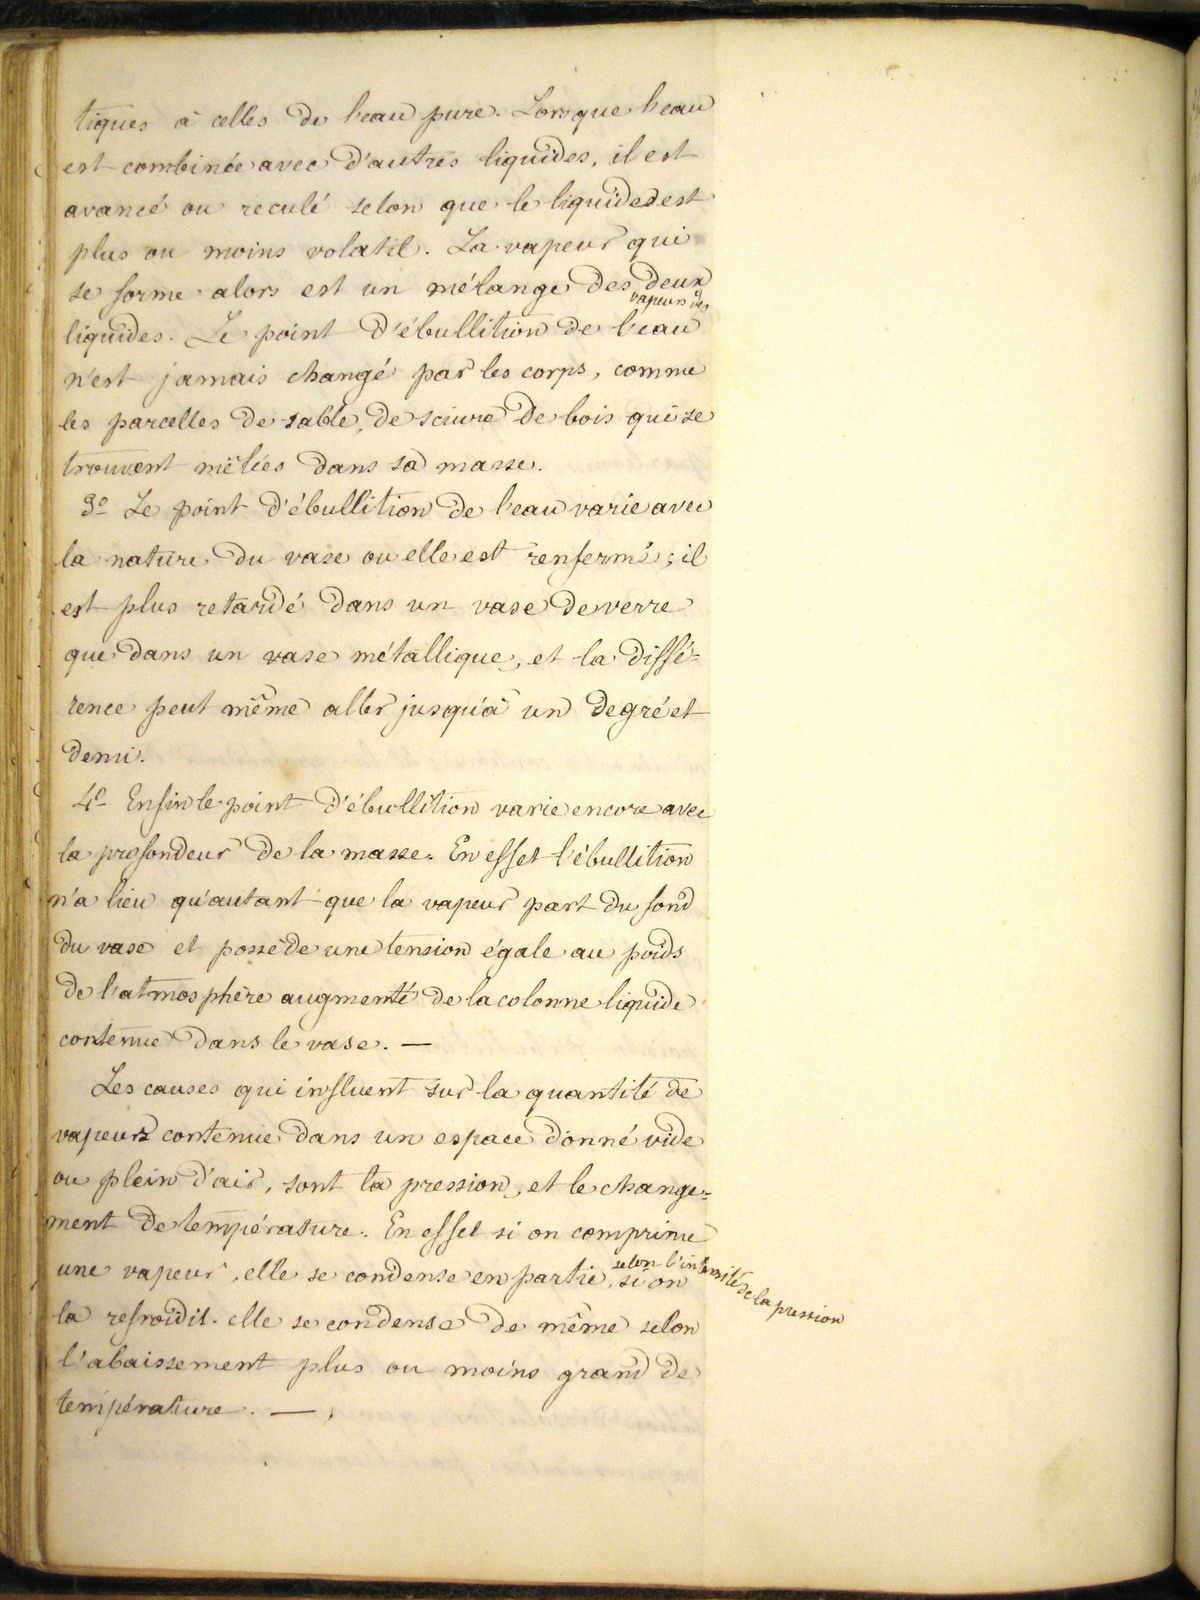 tiques à celles de l'eau pure. Lorsque l'eau
est combinée avec d'autres liquides, il est
avancé ou reculé selon que le liquide est
plus ou moins volatil. La vapeur qui
se forme alors est un mélange des deux
vapeurs des
liquides. Le point d'ébullition de l'eau
n'est jamais changé par les corps, comme
les parcelles de sable, de sciure de bois qui se
trouvent mêlées dans sa masse.
3º Le point d'ébullition de l'eau varie avec
la nature du vase ou elle est renfermé; il
est plus retardé dans un vase de verre
que dans un vase métallique, et la diffé=
rence peut même aller jusqu'à un degré et
demi.
4º Enfin le point d'ébullition varie encore avec
la profondeur de la masse. En effet l'ébullition
n'a lieu qu'autant que la vapeur part du fond
du vase et possède une tension égale au poids
de l'atmosphère augmenté de la colonne liquide
contenue dans le vase. —
Les causes qui influent sur la quantité de
vapeurs contenue dans un espace donné vide
ou plein d'air, sont la pression, et le change=
ment de température. En effet si on comprime
une vapeur, elle se condense en partie, si on
selon l'intensité de la pression
la refroidit. elle se condense de même selon
l'abaissement plus ou moins grand de
température. —